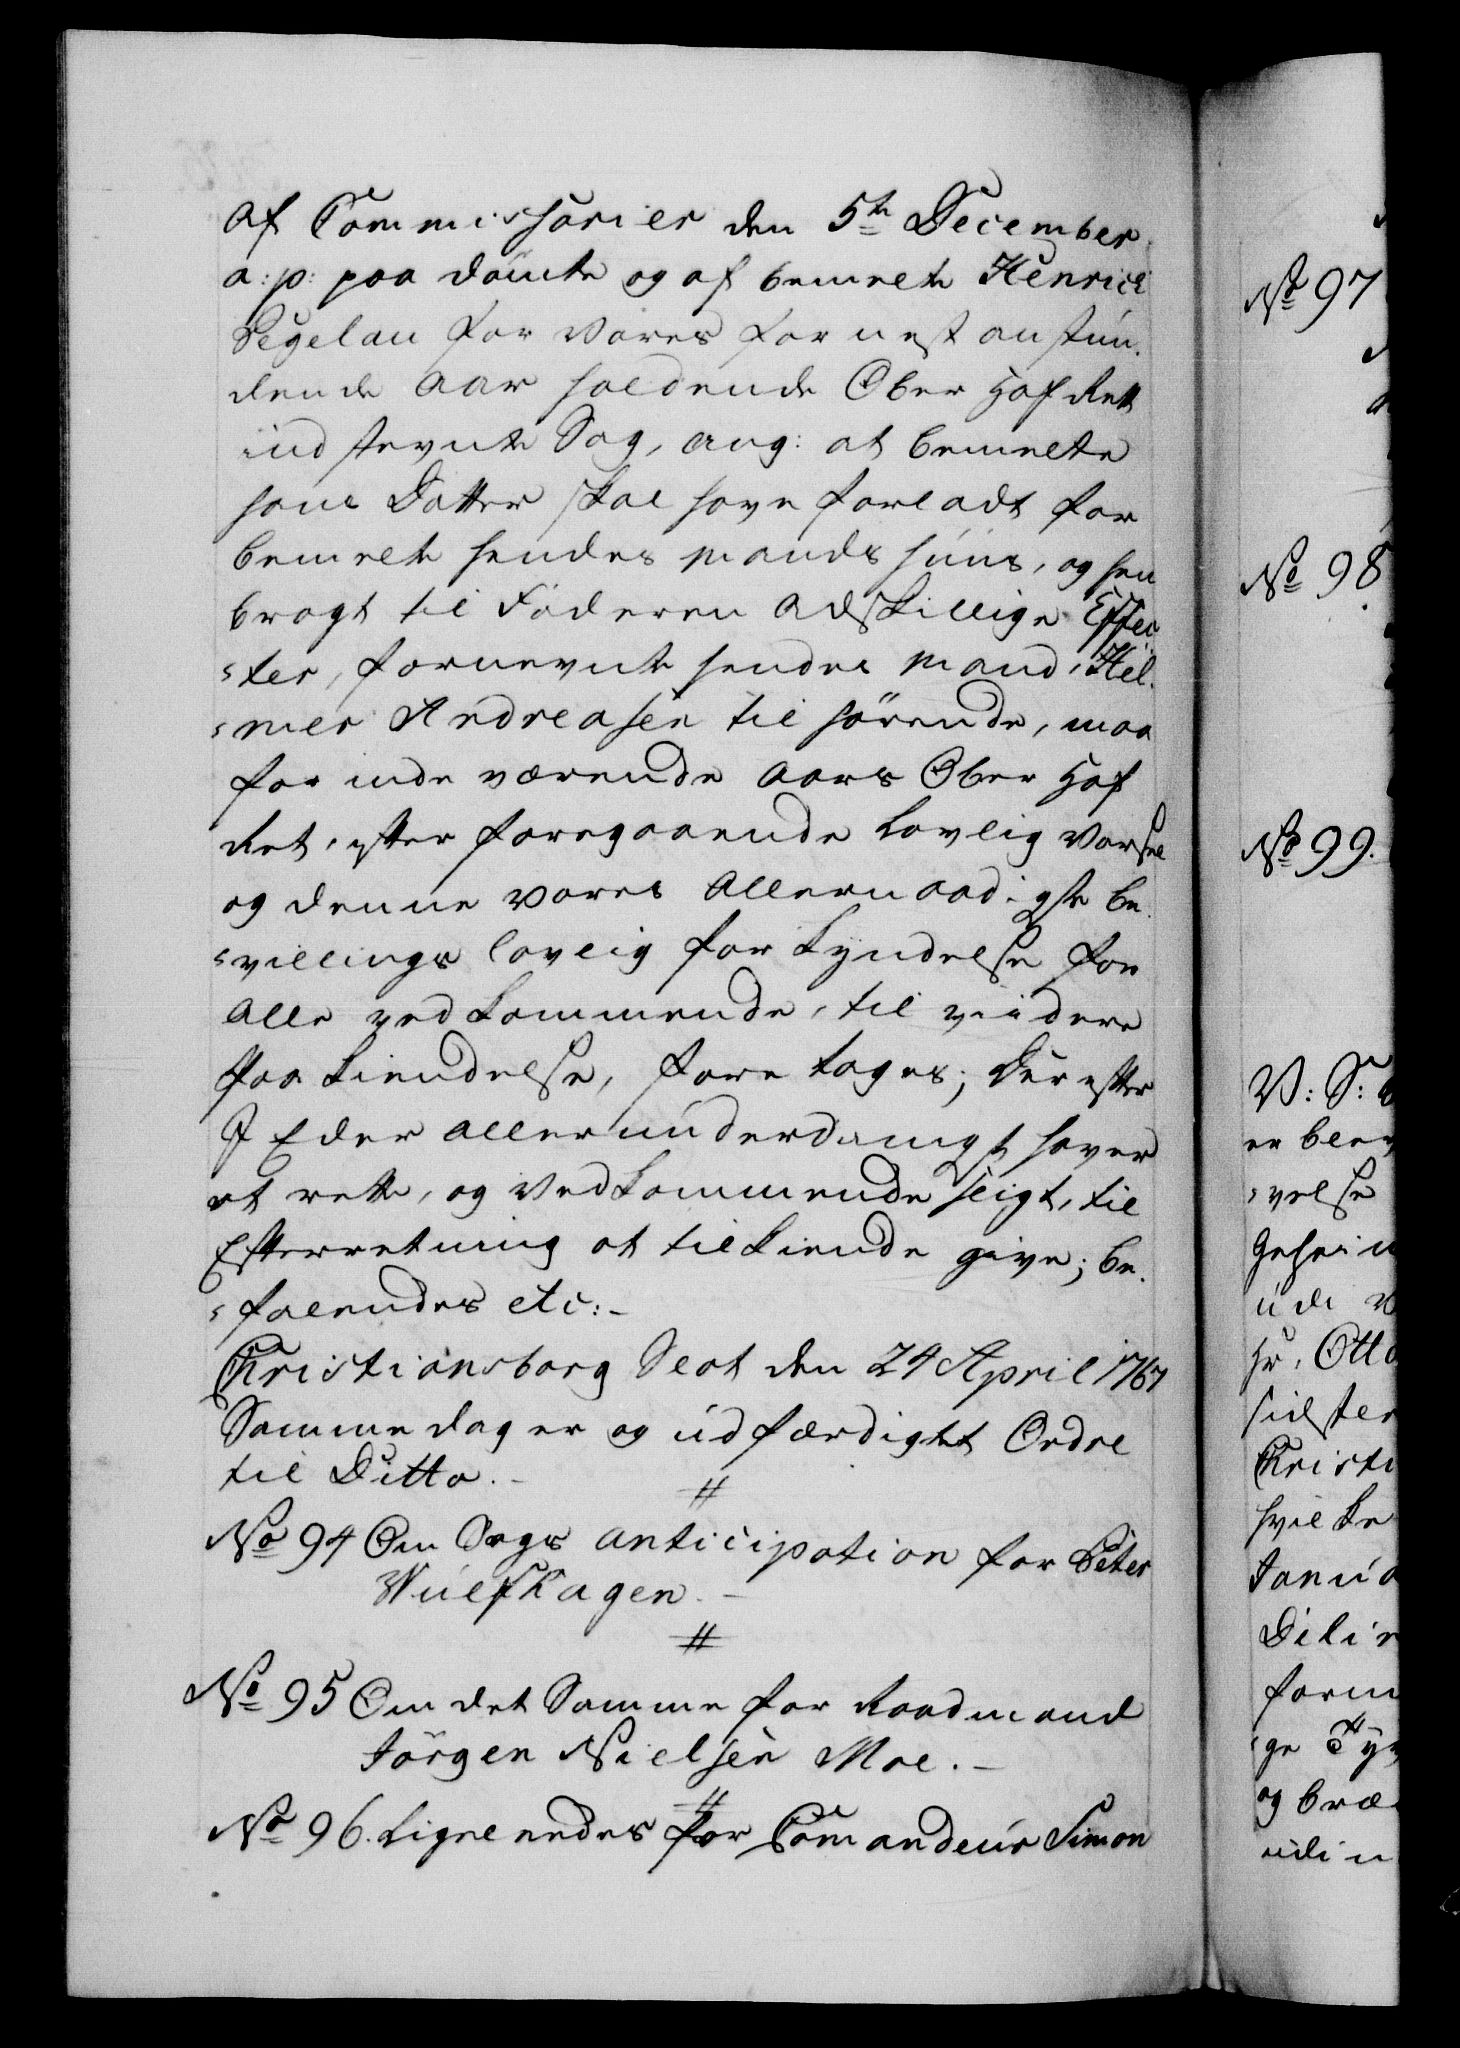 af Commissarier den 5te December
a: p: paa dömte og af bemelte Henrich
Segelau for Vores for nest anstun-
dende Aar holdende Ober Hof Rett
ind stevnte Sag, ang: at bemelte
hans Datter skal have forladt for
bemelte hendes Mands Huus, og hen
bragt til Faderen Adskillige Effec-
=ter, fornevnte hendes Mand, Hel-
=mer Andreasen til hörende, maa
for inde værende Aars Ober Hof
Ret, efter foregaaende Lovlig Varsel
og denne Vores Allernaadigste Be-
=villings lovlig for Kyndelse for
Alle ved Kommende, til viidere
Paa Kiendelse, fore tages; Der efter
I Eder allerunderdanigst haver
at rette, og Vedkommende sligt, til
Efterretning at tilkiende give; be-
=falendes etc:-
Christiansborg Slot den 24 April 1767
Samme dag er og udfærdiget Ordre
til Ditto.-
#
No 94 Om Sags anticipation for Peter
Wülfhagen.-
#
No 95 Om det Samme for Raadmand
Jörgen Nielsen Moe.-
#
No 96. Ligeleedes for Comandeur Simon
No 97
No 98
No 99.
V: S:
er blev
=velse
Geheim
udi
Hr. Otto
sidster
Christi
hvilke
Janua
form
og bræ